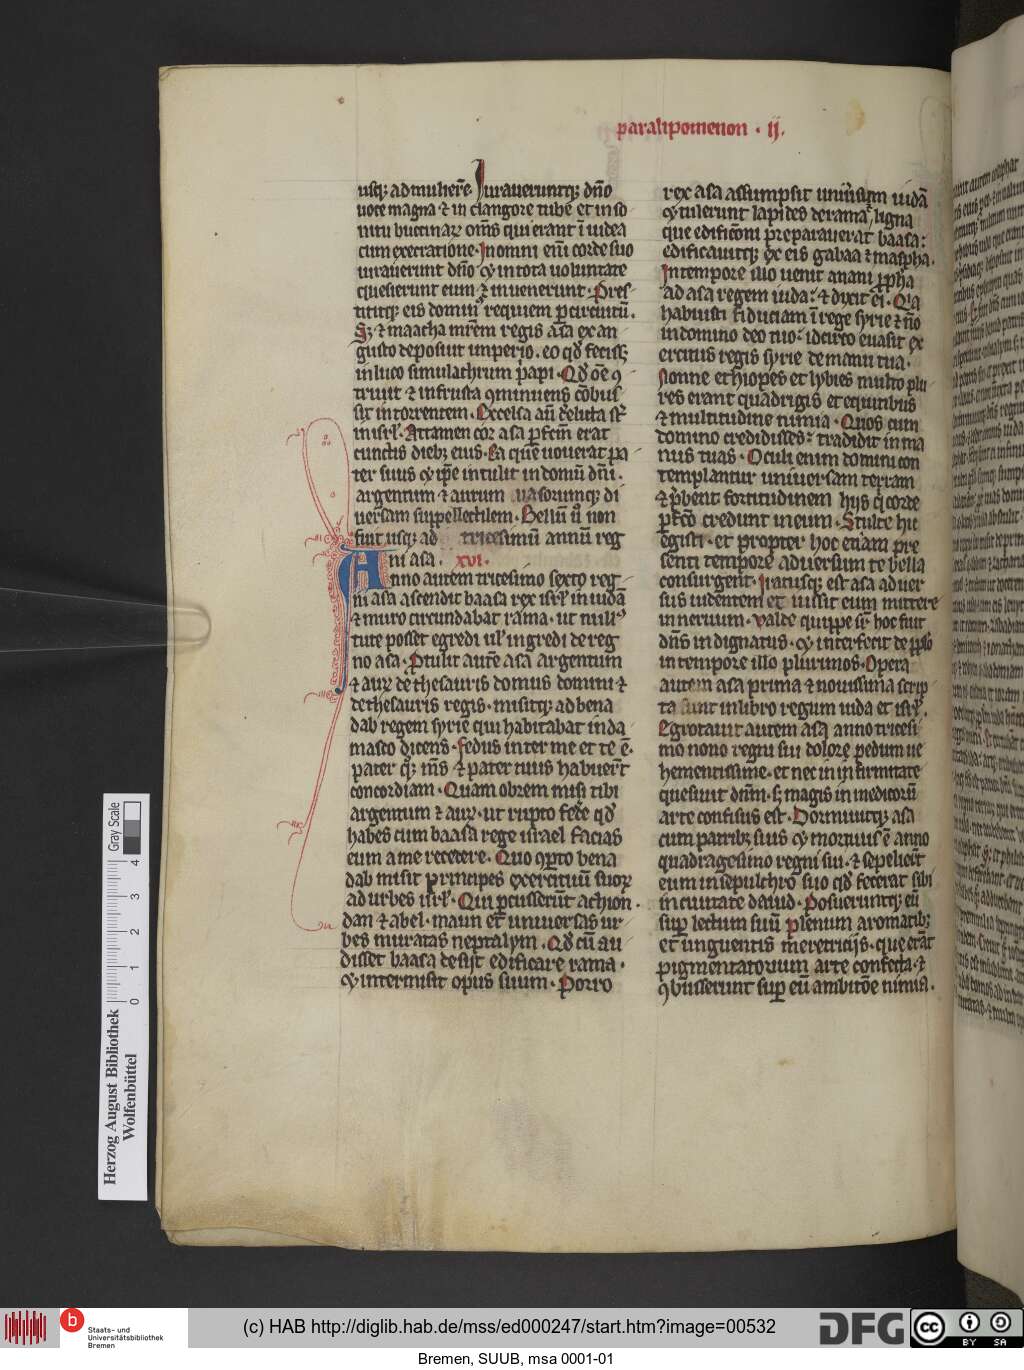 paralipomenon · ij.
usq; ad mulierē. Iuraueruntq; dño
uoce magna ⁊ in clangore tube et in so
nitu buccinaꝝ om̄s qui erant ī iudea
cum execratione. In omni eni corde suo
iurauerunt dño ⁊ in tota uoluntate
quesierunt eum ⁊ inuenerunt. Pres
tititq; eis domin' requiem ꝑ circuitū.
S; ⁊ maacha mr̄em regis asa ex au
gusto deposuit imperio. eo qđ feciss;
in luco simulachrum priapi. Qđ oē ꝯ
triuit ⁊ in frusta ꝯminuens cōbus
sit in torrente m. Excelsa aū derelicta st̄
in isrl'. Attamen cor asa ꝑfcm̄ erat
cunctis dieb; eius. Ea que uouerat pa
ter suus ⁊ ip̄e intulit in domū dn̄i.
argentum ⁊ aurum uasorumq; di
uersam suppellectilem. Bellū u° non
fuit usq; ad tricesimū annū reg
ni asa. xvi.
Anno autem tricesimo sexto reg
ni asa ascendit baasa rex isrl' in iudā
⁊ muro circundabat rama. ut null'
tute posset egredi ul' ingredi de reg
no asa. Ptulit autē asa argentum
⁊ auꝝ de thesauris domus domini ⁊
de thesauris regis. misitq; ad bena
dab regem syrie qui habitabat in da
masco dicens. Fedus inter me et te ē.
pater q; m̄s ⁊ pater tuus habuerūt
concordiam. Quam obrem misi tibi
argentum ⁊ auꝝ. ut rupto fedē qđ
habes cum baasa rege israel facias
eum a me recedere. Quo ꝯperto bena
dab misit principes exercituū suoꝝ
ad urbes isrl'. Qui ꝑcusserūt achion.
dan ⁊ abel. maim et uniuersas ur
bes muratas neptalym. Qđ cū au
disset baasa desijt edificare rama.
⁊ intermisit opus suum. Porro
rex asa assumpsit uniūsum iudā
⁊ tulerunt lapides de rama, ligna
que edificōni preparauerat baasa:
edificauitq; ex eis gabaa ⁊ maspha.
In tempore illo uenit anani ꝓpha
ad asa regem iuda. ⁊ dixit ei. Qia
habuisti fiduciam ī rege syrie ⁊ nō
in domino deo tuo. idcirco euasit ex
ercitus regis syrie de manu tua.
Nonne ethiopes et lybies multo plu
res erant quadrigis et equitibus
⁊ multitudine nimia. Quos cum
domino credidisses: tradidit in ma
nus tuas. Oculi enim domini con
templantur uniuersam terram
⁊ p̄bent fortitudinem hijs q̄ corde
ꝑfc̄o credunt in eum. Stulte hu
egisti. et propter hoc etiam pre
senti tempore aduersum te bella
consurgent. Iratusq; est asa aduer
sus uidentem et iussit eum mittere
in neruum. Valde quippe sr̄ hoc fuit
dn̄s indignatus. ⁊ interfecit de pplo
in tempore illo plurimos. Opera
autem asa prima ⁊ nouissima scrip
ta sunt in libro regum iuda et isrl'.
Egrotauit autem asa anno tricesi
mo nono regni sui dolore pedum ue
hementissime. et nec in infirmitate
quesiuit dn̄m. s; magis in medicorū
arte confisus est. Dormiuitq; asa
cum patrib; suis ⁊ mortuus ē anno
quadragesimo regni sui. ⁊ sepelierūt
eum in sepulchro suo qđ fecerat sibi
in ciuitate dauid. Posueruntq; eū
sup lectum suū plenum aromatib;
et unguentis meretricijs. que erāt
pigmentatorium arte confecta. ⁊
ꝯbusserunt sup eū ambitōe nimia.
Herzog August Bibliothek
Wolfenbüttel
0 1 2 3 4
Gray Scale
b
Staats- und
Universitätsbibliothek
Bremen
(c) HAB http://diglib.hab.de/mss/ed000247/start.htm?image=00532
DFG
cc BY SA
Bremen, SUUB, msa 0001-01